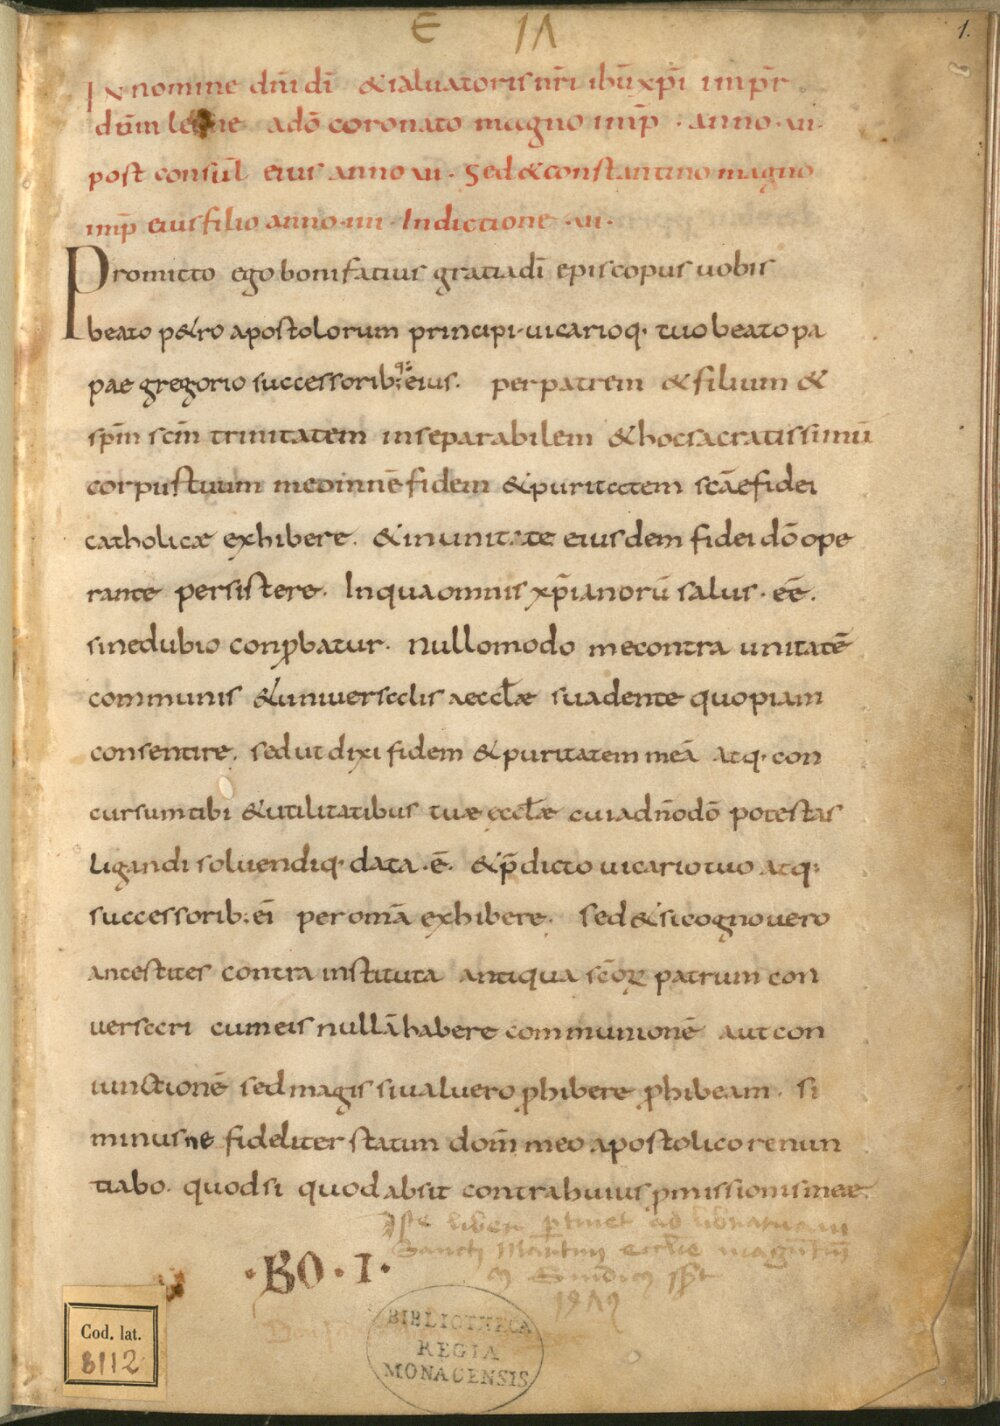 E IΛ
1.
In nomine dn̄i dī & saluatoris nr̄i ihū xp̄i imp̄r
dūm leone adō coronato magno imp̄ · anno · ui ·
post consul̄ eius anno ui · Sed & constantino magno
imp̄ eius filio anno · iiii · Indictione · ui ·
Promitto ego bonifatius gratia dī episcopus uobis
beato p&ro apostolorum principi · uicarioq · tuo beato pa
pae gregorio successorib; q; eius · per patrem & filium &
sp̄m sc̄m trinitatem inseparabilem & hoc sacratissimū
corpus tuum me omnē fidem & puritatem sc̄ae fidei
catholicæ exhibere · & in unitate eiusdem fidei dō ope
rante persistere · In qua omnis xp̄ianorū salus · eē ·
sine dubio conp̄batur · Nullo modo me contra unitatē
communis & uniuersalis aeccl̄æ suadente quopiam
consentire · sed ut dixi fidem & puritatem meā atq · con
cursum tibi & utilitatibus tuæ eccl̄æ cui a dn̄o dō potestas
ligandi soluendiq · data · ē · & p̄dicto uicario tuo atq ·
successorib; eī per omā exhibere · sed & si cognouero
antestites contra instituta antiqua sc̄oꝝ patrum con
uersari cum eis nullā habere communionē aut con
iunctionē sed magis si ualuero p̄hibere p̄hibeam · si
minus ne fideliter statim dom̄ meo apostolico renun
tiabo · quod si quod absit contra huius p̄missionis meæ
Iste liber p̄tinet ad librariam
Sancti Martini eccl̄ie
· BO · I ·
BIBLIOTHECA
REGIA
MONACENSIS
Cod. lat.
8112